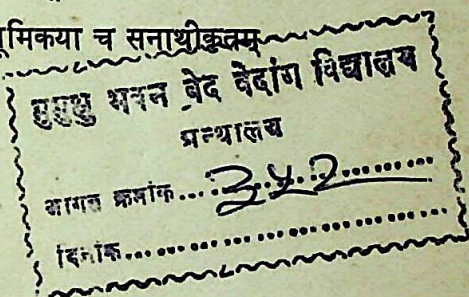 भूमिकया च सनाथीकृतम्
मुमुक्षु भवन वेद वेदांग विद्यालय
ग्रन्थालय
आगत क्रमांक... ३५२
दिनांक...